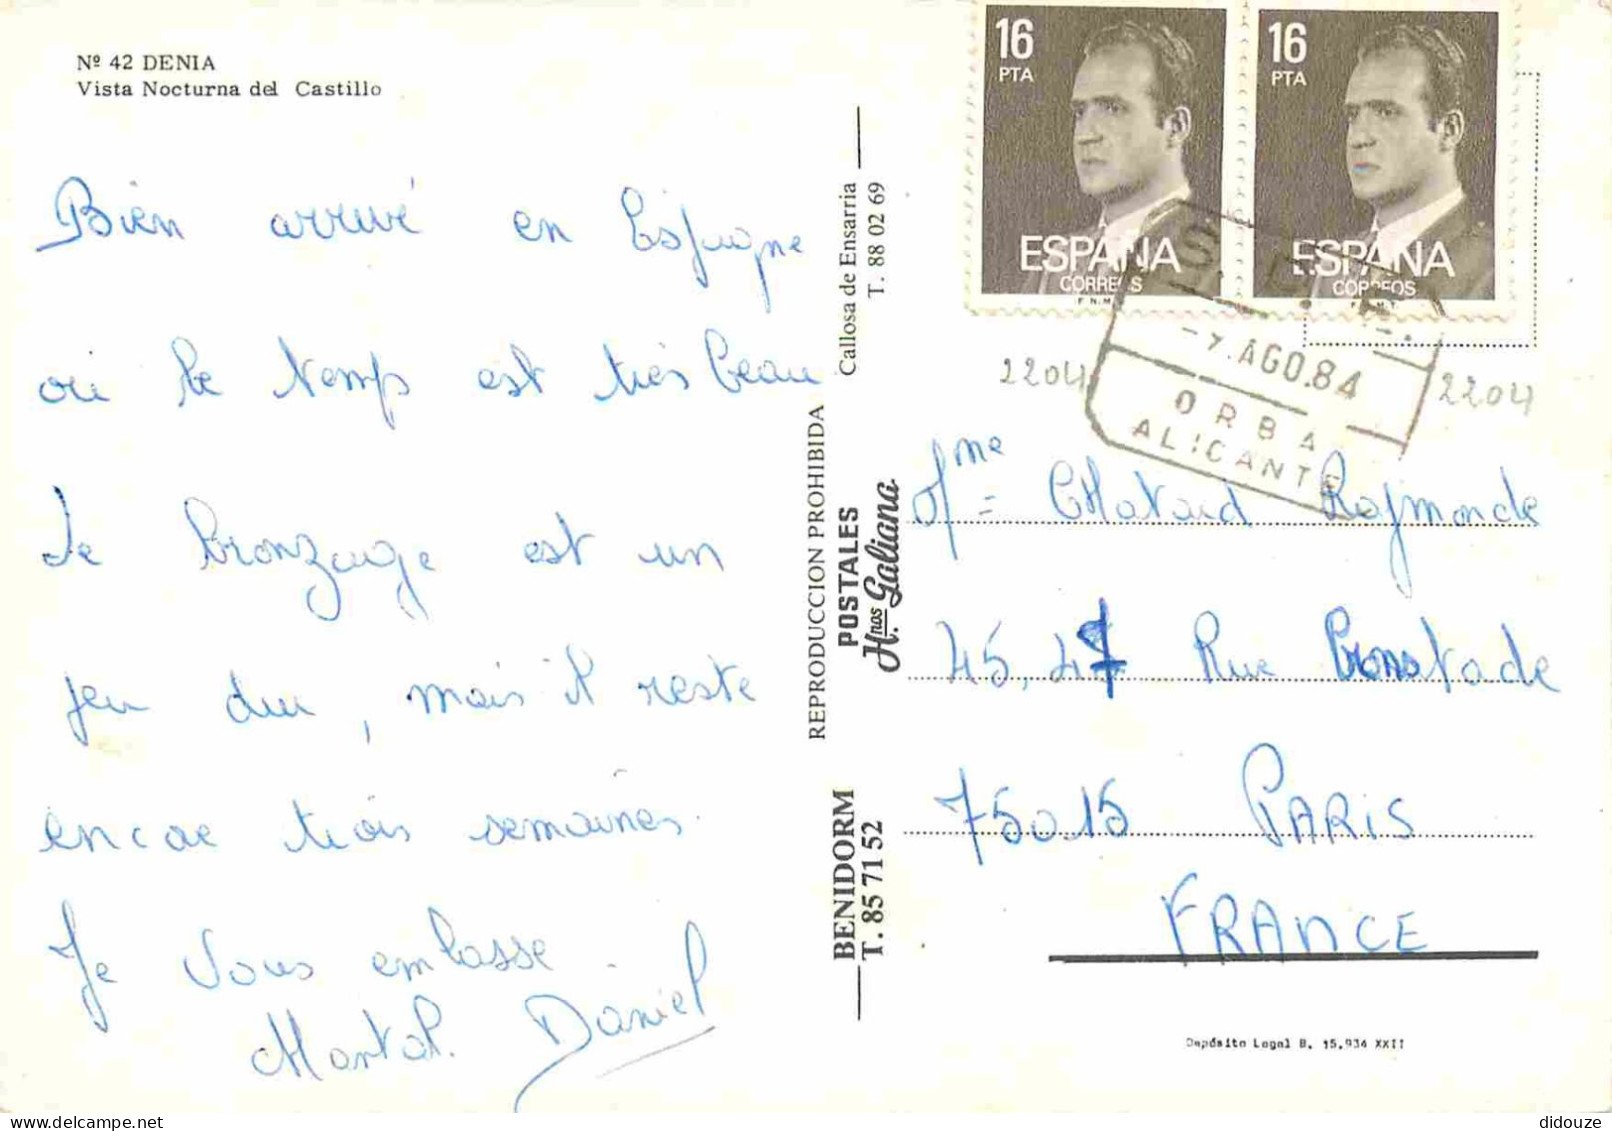 Nº 42 DENIA
Vista Nocturna del Castillo
Bien arrivé en Espagne
où le temps est très beau
Le bronzage est un
peu dur, mais il reste
encore trois semaines.
Je vous embrasse.
Daniel
Callosa de Ensarria
T. 88 02 69
REPRODUCCION PROHIBIDA
POSTALES
Hnos Galiana
BENIDORM
T. 85 71 52
16
PTA
ESPAÑA
CORREOS
F.N.M.T.
16
PTA
ESPAÑA
CORREOS
F.N.M.T.
-7. AGO.84
ORBA
ALICANTE
2204
2204
Mme Chatard Raymonde
45, 47 Rue
75015 PARIS
FRANCE
Depósito Legal B. 15.934 XXII
didouze